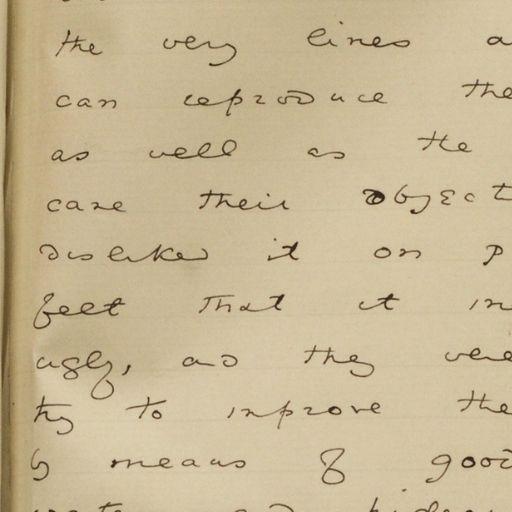 the very lines a
can reproduce the
as well as the
case their object
disliked it on p
felt that it in
ugly, and they were
try to improve the
by means of good